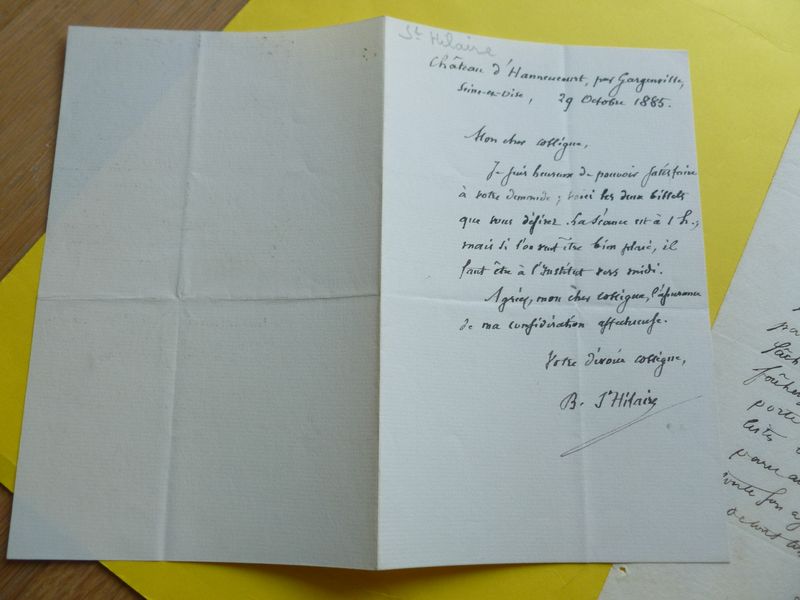 St Hilaire
Château d'Hannencourt, par Gargenville,
Seine-et-Oise, 29 Octobre 1885.
Mon cher collègue,
Je suis heureux de pouvoir satisfaire
à votre demande; voici les deux billets
que vous désirez. La séance est à 1 h.;
mais si l'on veut être bien placé, il
faut être à l'Institut vers midi.
Agréez, mon cher collègue, l'assurance
de ma considération affectueuse.
Votre dévoué collègue,
B. St Hilaire
porte